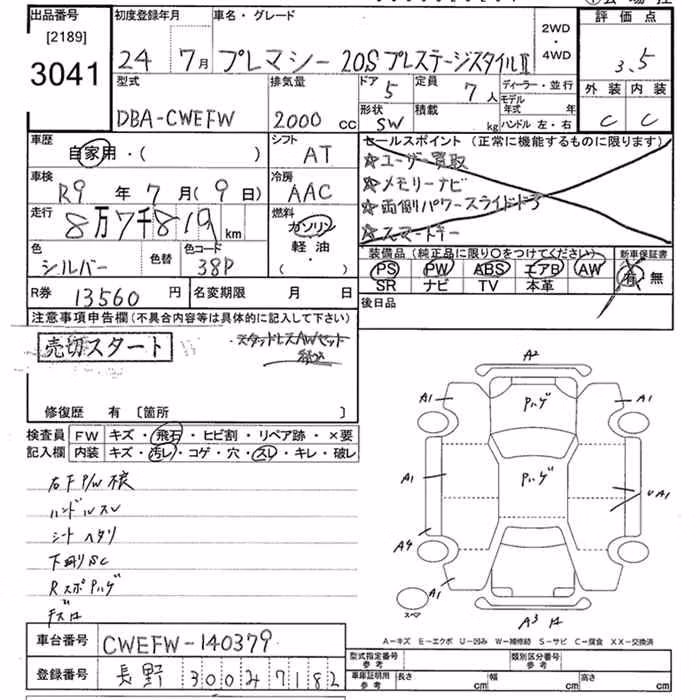 出品番号 [2189] 3041
初度登録年月 24 7月
車名・グレード プレマシー 20S プレステージスタイルⅡ
2WD・4WD
評価点 3.5
外装 内装
C C
型式 DBA-CWEFW
排気量 2000 cc
ドア 5
定員 7人
形状 SW
積載 kg
ディーラー・並行
モデル年式 年
ハンドル 左・右
車歴 自家用・( )
シフト AT
車検 R9年7月(9日)
冷房 AAC
走行 8万7千819 km
燃料 ガソリン・軽油・( )
色 シルバー
色替
色コード 38P
R券 13560円
名変期限 月 日
セールスポイント (正常に機能するものに限ります)
☆ユーザー買取
☆メモリーナビ
☆両側パワースライドドア
☆スマートキー
装備品 (純正品に限り○をつけてください)
PS PW ABS エアB AW
SR ナビ TV 本革
新車保証書
有 無
後日品
注意事項申告欄(不具合内容等は具体的に記入して下さい)
売切スタート
スタッドレスAWセット
修復歴 有 [箇所 ]
検査員記入欄
FW キズ・飛石・ヒビ割・リペア跡・×要
内装 キズ・汚レ・コゲ・穴・スレ・キレ・破レ
右F P/W検
ハンドルスレ
シートヘタリ
下廻りSC
RスポPハゲ
A2
A1 Pハゲ A1
A1 Pハゲ UA1
A4
A1
スペア
A3
A-キズ E-エクボ U-凹み W-補修跡 S-サビ C-腐食 XX-交換済
車台番号 CWEFW-140379
登録番号 長野 300 む 7182
型式指定番号 参考
類別区分番号 参考
車庫証明用 参考 長さ cm 幅 cm 高さ cm